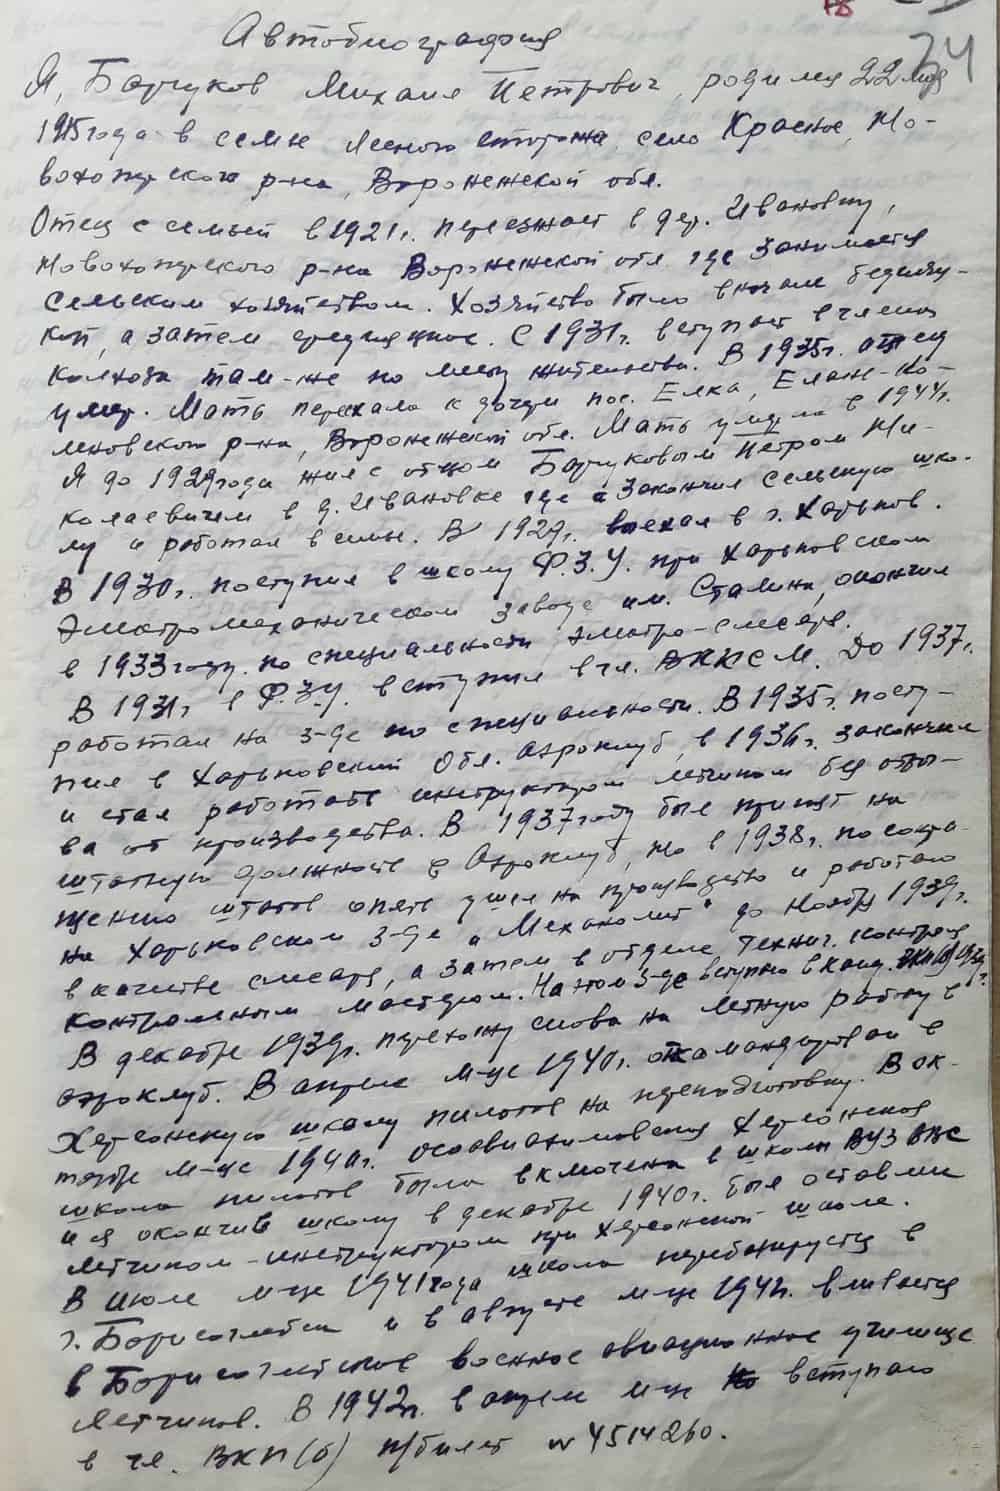 78
34
Автобиография
Я, Барчуков Михаил Петрович, родился 22 мая
1915 года в семье лесного сторожа село Красное, Но-
вохоперского р-на, Воронежской обл.
Отец с семьей в 1921г. переезжает в дер. Ивановку,
Новохоперского р-на Воронежской обл. где занимается
сельским хозяйством. Хозяйство было вначале бедняц-
кой, а затем середняцкое. С 1931г. вступает в члены
колхоза там-же по месту жительства. В 1935г. отец
умер. Мать перехала к дочери пос. Елка, Елань-Ко-
леновского р-на, Воронежской обл. Мать умерла в 1944г.
Я до 1929 года жил с отцом Барчуковым Петром Ни-
колаевичем в д. Ивановке где и закончил сельскую шко-
лу и работал в семье. В 1929г. выехал в г. Харьков.
В 1930г. поступил в школу Ф.З.У. при Харьковском
Электромеханическом заводе им. Сталина, окончил
в 1933 году по специальности электро-слесарь.
В 1931г в Ф.З.У. вступил в чл. ВЛКСМ. До 1937г.
работал на з-де по специальности. В 1935г. посту-
пил в Харьковский Обл. аэроклуб, в 1936г. закончил
и стал работать инструктором летчиком без отры-
ва от производства. В 1937 году был принят на
штатную должность в Аэроклуб, но в 1938г. по сокра-
щению штатов опять ушел на производство и работаю
на Харьковском з-де "Механолит" до Ноября 1939г.
в качестве слесаря, а затем в отделе технич. контроля
контрольным мастером. На этом з-де вступаю в канд. ВКП(б)
В декабре 1939г. перехожу снова на летную работу в
аэроклуб. В апреле м-це 1940г. откомандирован в
Херсонскую школу пилотов на переподготовку. В ок-
тябре м-це 1940г. осоавиахимовская Херсонская
школа пилотов была включена в школы ВУЗ ВВС
и я окончив школу в декабре 1940г. был оставлен
летчиком-инструктором при Херсонской школе.
В июле м-це 1941 года школа перебазируется в
г. Борисоглебск и в августе м-це 194 г. вливается
в Борисоглебское военное авиационное училище
летчиков. В 1942г. в апреле м-це вступаю
в чл. ВКП(б) п/билет № 4514260.